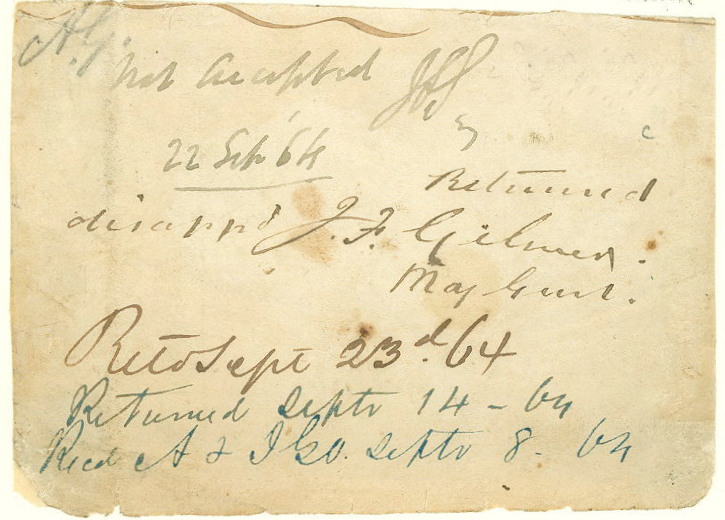 A.G.
Not accepted
22 Sept 64
Returned
disappd J. F. Gilmer.
Maj Genl.
Retd Sept 23d. 64
Returned Septr 14 - 64
Recd A & IGO. Septr 8 - 64